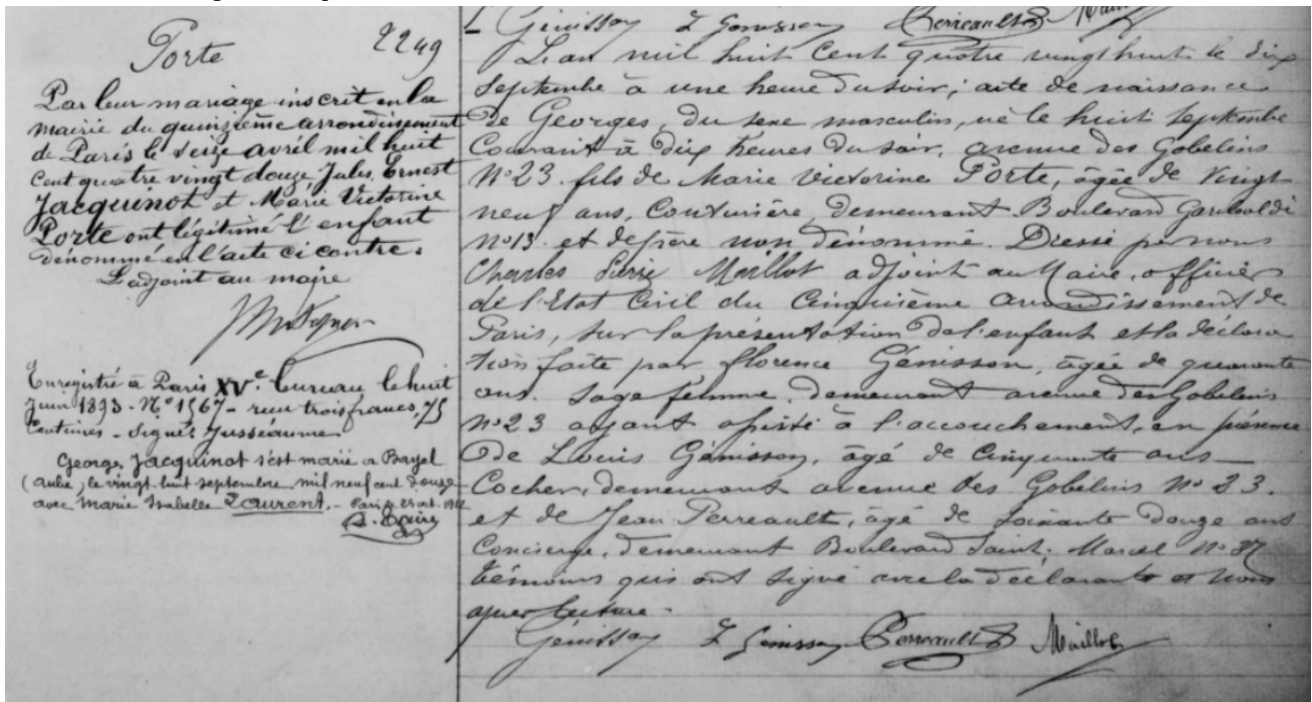 Porte
2249
Par leur mariage inscrit en la
mairie du quinzième arrondissement
de Paris le seize avril mil huit
cent quatre vingt douze Jules, Ernest
Jacquinot et Marie Victorine
Porte ont légitimé l'enfant
dénommé en l'acte ci contre.
L'adjoint au maire
Enregistré à Paris XVe bureau le huit
Juin 1893 - No 1567 - reçu trois francs, 75
Centimes - Signé Jusséaume
Georges Jacquinot s'est marié à Bayel
(aube) le vingt huit septembre mil neuf cent douze
avec Marie Isabelle Laurent. - Paris le 23 oct. 1912
Génisson L Génisson Perreault
L'an mil huit cent quatre vingt huit le dix
Septembre à une heure du soir; acte de naissance
de Georges, du sexe masculin, né le huit Septembre
Courant à dix heures du soir, avenue des Gobelins
No 23. fils de Marie Victorine Porte, âgée de vingt
neuf ans, Couturière, demeurant Boulevard Garibaldi
No 13. et de père non dénommé. Dressé par nous
Charles Maillot adjoint au Maire, officier
de l'Etat Civil du Cinquième arrondissement de
Paris, sur la présentation de l'enfant et la déclara
tion faite par Florence Génisson, âgée de quarante
ans. Sage femme, demeurant avenue des Gobelins
No 23 ayant assisté à l'accouchement, en présence
de Louis Génisson, âgé de Cinquante ans
Cocher, demeurant avenue des Gobelins No 23.
et de Jean Perreault, âgé de soixante douze ans
Concierge, demeurant Boulevard Saint-Marcel No 37
témoins qui ont signé avec la déclarante et nous
après lecture.
Génisson L Génisson Perreault Maillot